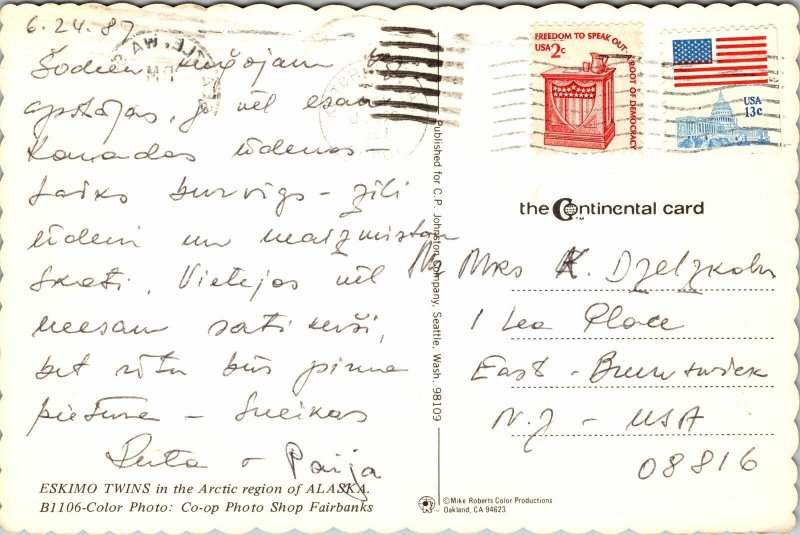 6.24.87
Šodien
apstājas, jo vēl esam
Kanadas ūdeņos -
Laiks burvīgs - zili
ūdeņi un neaizmirstami
skati. Vietējos vēl
neesam satikuši,
bet rītu būs pirmā
pietura - Sveikas
Ruta & Paija
ESKIMO TWINS in the Arctic region of ALASKA.
B1106-Color Photo: Co-op Photo Shop Fairbanks
Published for C.P. Johnston Company, Seattle, Wash. 98109
FREEDOM TO SPEAK OUT-A ROOT OF DEMOCRACY
USA 2c
USA
13c
the Continental card
TM
Mrs K. Dzelzkalns
1 Lea Place
East - Brunswick
N.J - USA
08816
© Mike Roberts Color Productions
Oakland, CA 94623